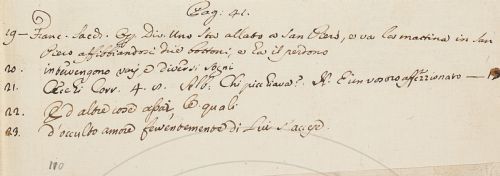 Pag: 41.
19 — Franc. Sacch. Op. Div. Uno sta allato a San Piero, e va la mattina in San
Piero affibbiandosi due bottoni, e ha il perdono
20. intervengono varj e diversi segni
21. Cecchi Corr. 4. s. Alb. Chi picchiava? N. È un vostro affezzionato —
22. E d'altre cose assai, le quali
23. d'occulto amore ferventemente di lui s'accese.
110